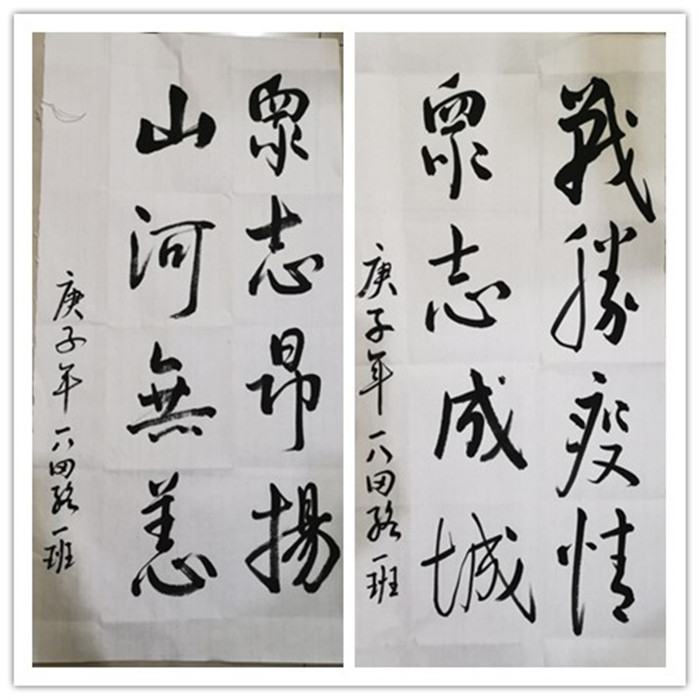 眾志昂揚
山河無恙
庚子年 一八四路一班
戰勝疫情
眾志成城
庚子年 一八四路一班